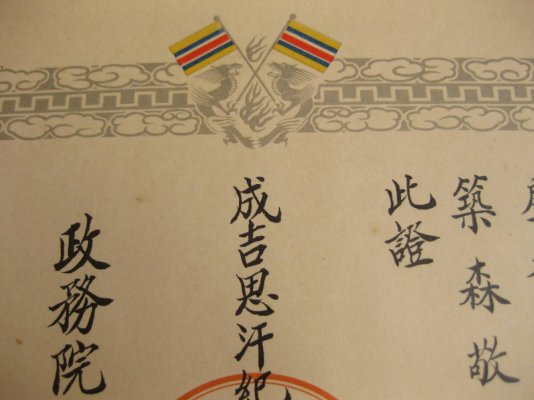 築森敬
此證
成吉思汗紀
政務院